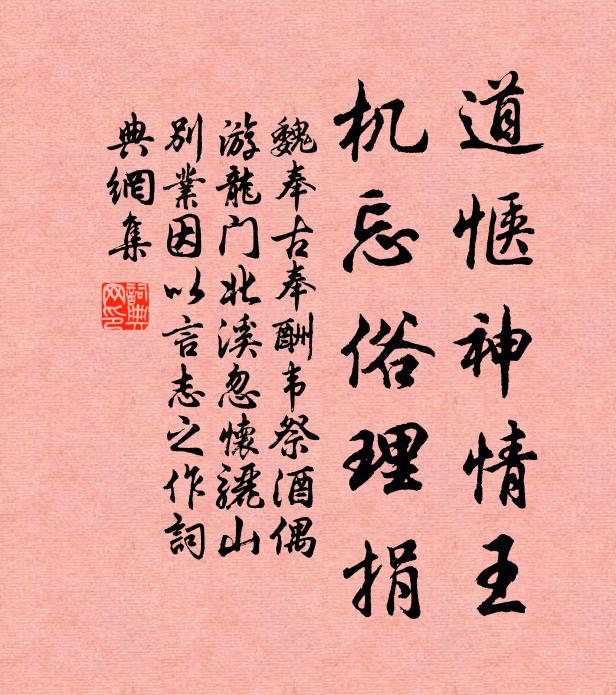 道惬神情王
机忘俗理捐
魏奉古奉酬韦祭酒偶
游龍门北溪忽懷骊山
别業因以言志之作詞
典網集
詞典
网印